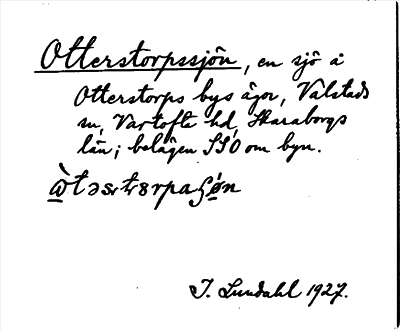 Otterstorpssjön, en sjö å
Otterstorps bys ägor, Valstads
sn, Vartofta hd, Skaraborgs
län; belägen SSO om byn.
I. Lundahl 1927.